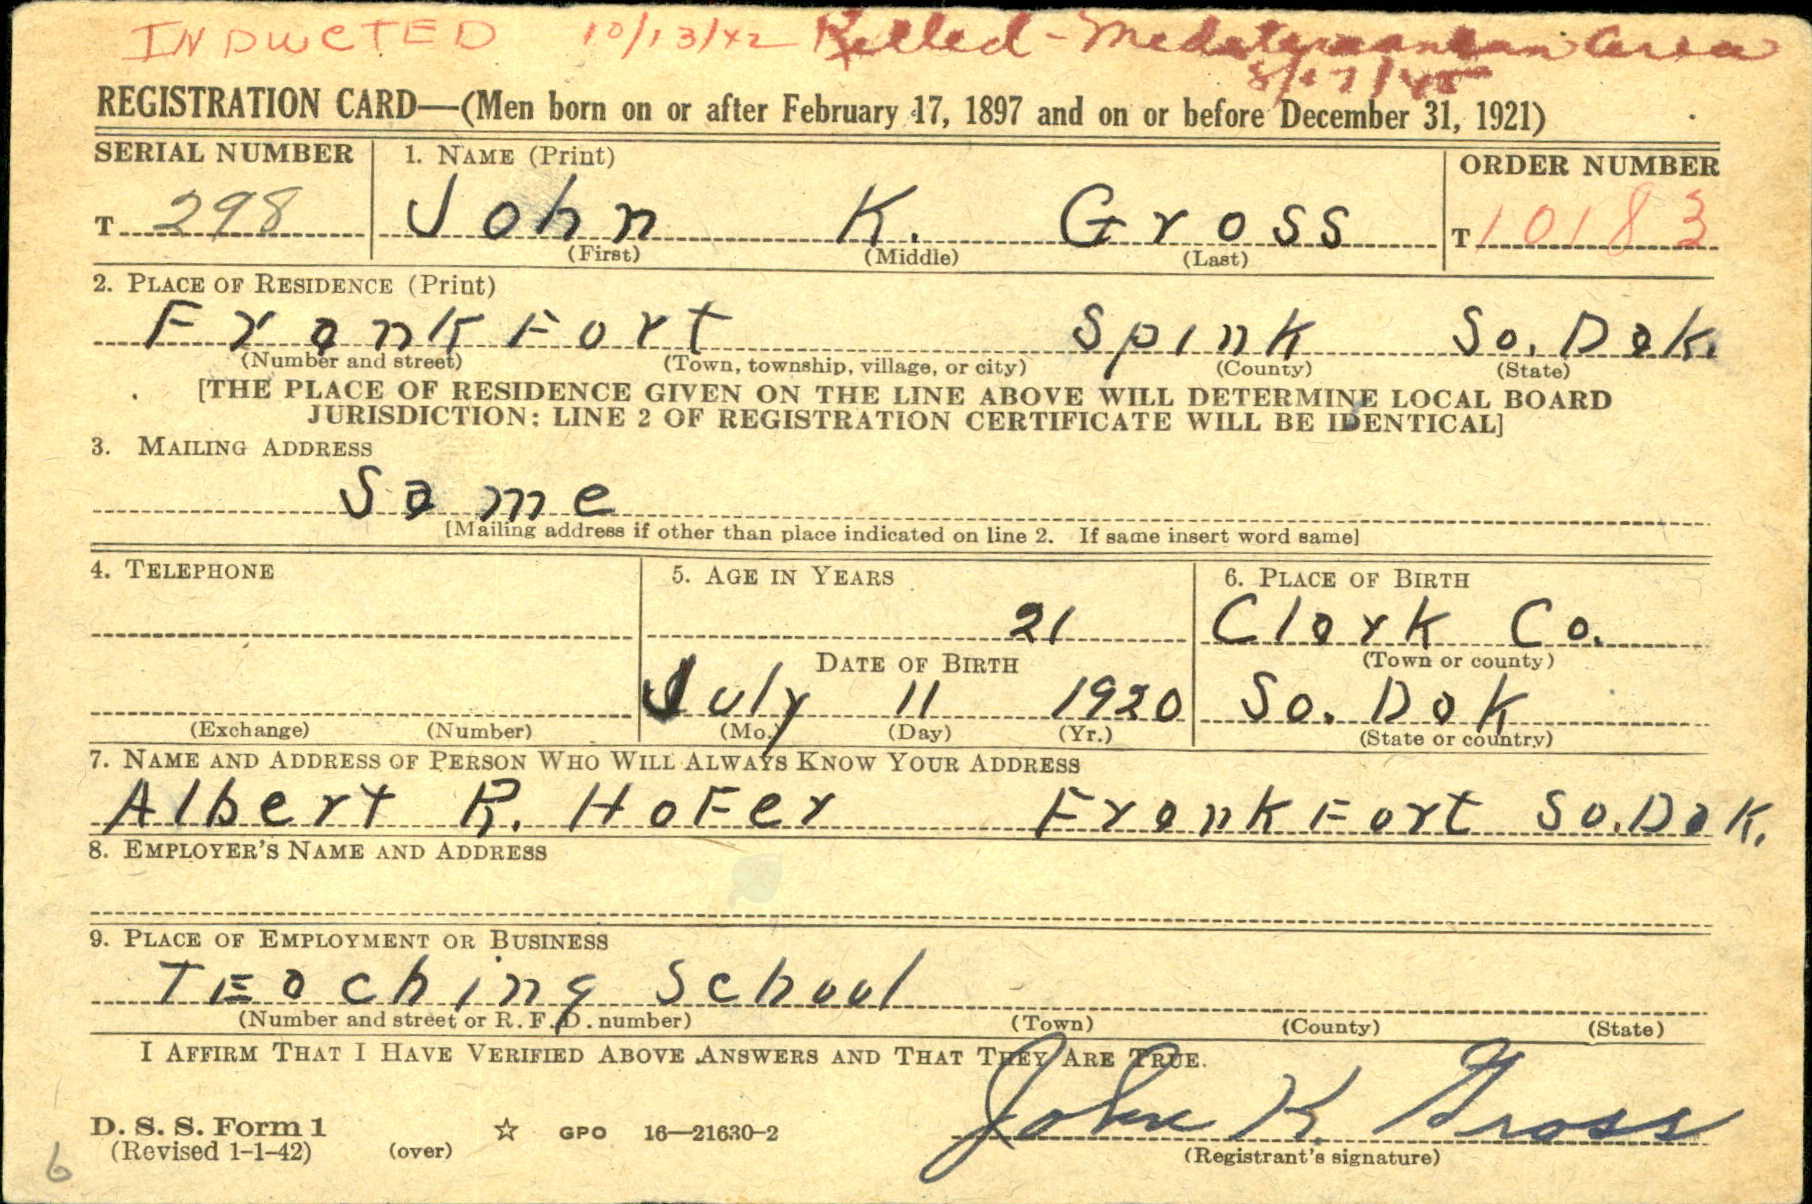 INDUCTED 10/13/42 Killed - Mediterranean area
REGISTRATION CARD—(Men born on or after February 17, 1897 and on or before December 31, 1921)
SERIAL NUMBER 1. NAME (Print) ORDER NUMBER
T 298 John K. Gross T 10183
(First) (Middle) (Last)
2. PLACE OF RESIDENCE (Print)
FrankFort Spink So. Dak.
(Number and street) (Town, township, village, or city) (County) (State)
[THE PLACE OF RESIDENCE GIVEN ON THE LINE ABOVE WILL DETERMINE LOCAL BOARD
JURISDICTION; LINE 2 OF REGISTRATION CERTIFICATE WILL BE IDENTICAL]
3. MAILING ADDRESS
Same
[Mailing address if other than place indicated on line 2. If same insert word same]
4. TELEPHONE 5. AGE IN YEARS 6. PLACE OF BIRTH
21 Clark Co.
DATE OF BIRTH (Town or county)
July 11 1920 So. Dak
(Exchange) (Number) (Mo.) (Day) (Yr.) (State or country)
7. NAME AND ADDRESS OF PERSON WHO WILL ALWAYS KNOW YOUR ADDRESS
Albert R. HoFer FrankFort So. Dak.
8. EMPLOYER'S NAME AND ADDRESS
9. PLACE OF EMPLOYMENT OR BUSINESS
TEaching School
(Number and street or R. F. D. number) (Town) (County) (State)
I AFFIRM THAT I HAVE VERIFIED ABOVE ANSWERS AND THAT THEY ARE TRUE.
John K. Gross
D. S. S. Form 1 ☆ GPO 16—21630-2
(Revised 1-1-42) (over) (Registrant's signature)
6